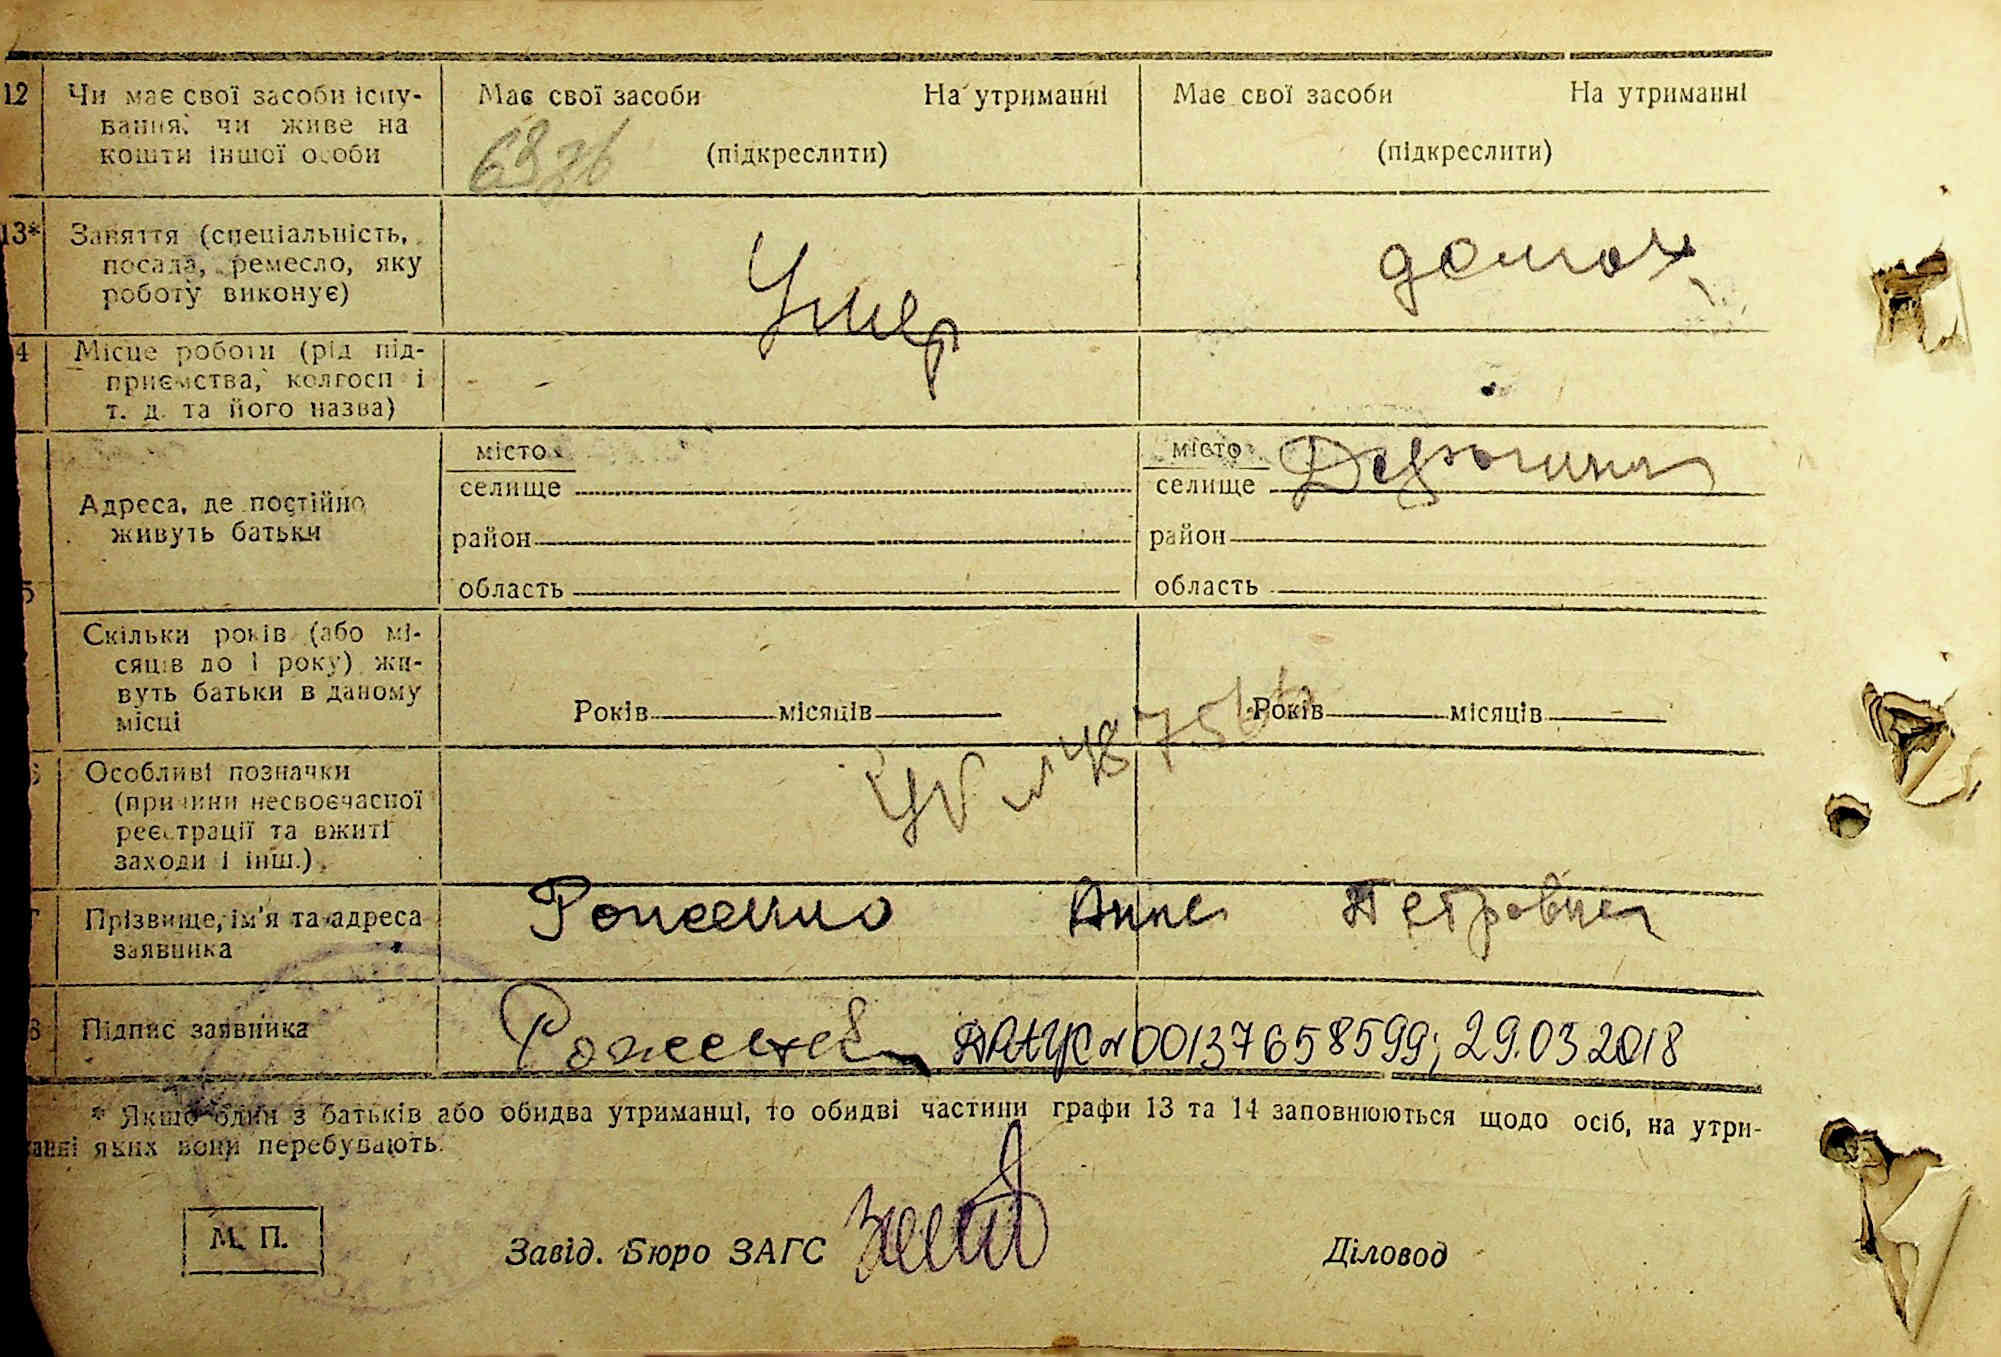 12 Чи має свої засоби існу-
вання, чи живе на
кошти іншої особи
Має свої засоби На утриманні
(підкреслити)
Має свої засоби На утриманні
(підкреслити)
13* Заняття (спеціальність,
посада, ремесло, яку
роботу виконує)
Умер
домох
4 Місце роботи (рід під-
приємства, колгосп і
т. д. та його назва)
-
Адреса, де постійно
живуть батьки
місто
селище
район
область
місто
селище
район
область
5
Скільки років (або мі-
сяців до 1 року) жи-
вуть батьки в даному
місці
Років місяців
Років місяців
Особливі позначки
(причини несвоєчасної
реєстрації та вжиті
заходи і інш.)
Прізвище, ім'я та адреса
заявника
Анна Петровна
8 Підпис заявника
00137658599; 29.03 2018
* Якщо один з батьків або обидва утриманці, то обидві частини графи 13 та 14 заповнюються щодо осіб, на утри-
манні яких вони перебувають.
М. П.
Завід. Бюро ЗАГС
Діловод